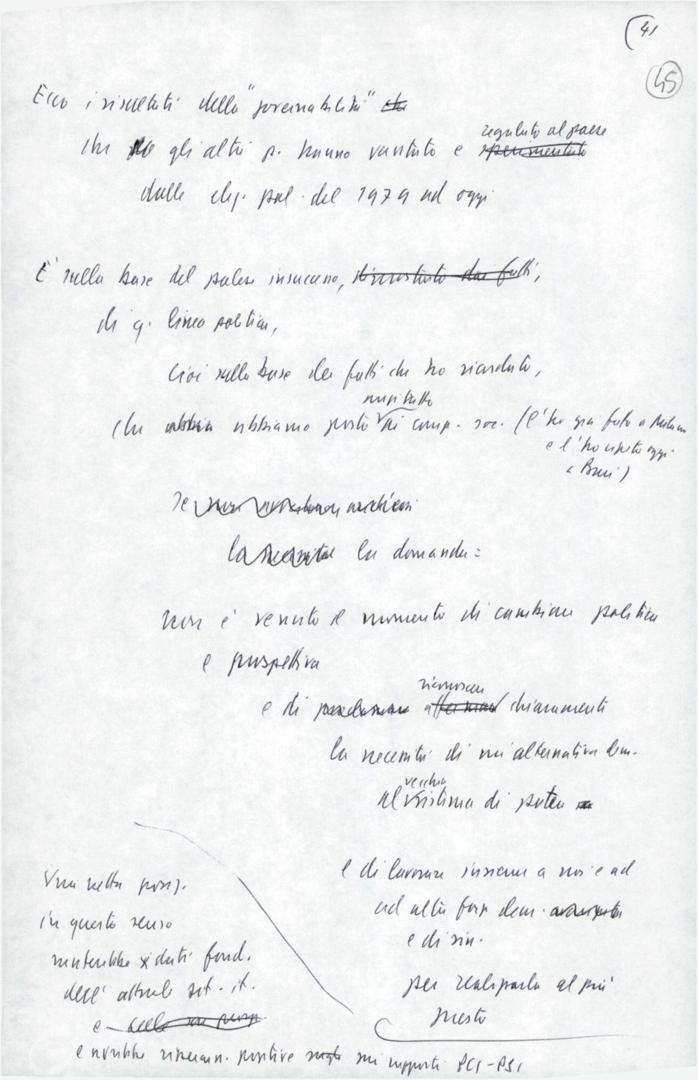 41
45
Ecco i risultati della "governabilità" che
che gli altri p. hanno vantato e regalato al paese sperimentato
dalle elez. pol. del 1979 ad oggi
È sulla base del palese insuccesso, dimostrato dai fatti,
di q. linea politica,
cioè sulla base dei fatti che ho ricordato,
che abbiamo posto anzitutto ai comp. soc. (l'ho già fatto a
e l'ho ripetuto oggi
a Bari)
se
la la domanda:
non è venuto il momento di cambiare politica
e prospettiva
e di riconoscere affermare chiaramente
la necessità di un'alternativa dem.
al vecchio sistema di potere
e di lavorare insieme a noi e ad
ad altre forze dem.
e di sin.
per realizzarla al più
presto
Una netta posiz.
in questo senso
muterebbe i dati fond.
dell'attuale sit. it.
e
e avrebbe positive sui rapporti PCI-PSI